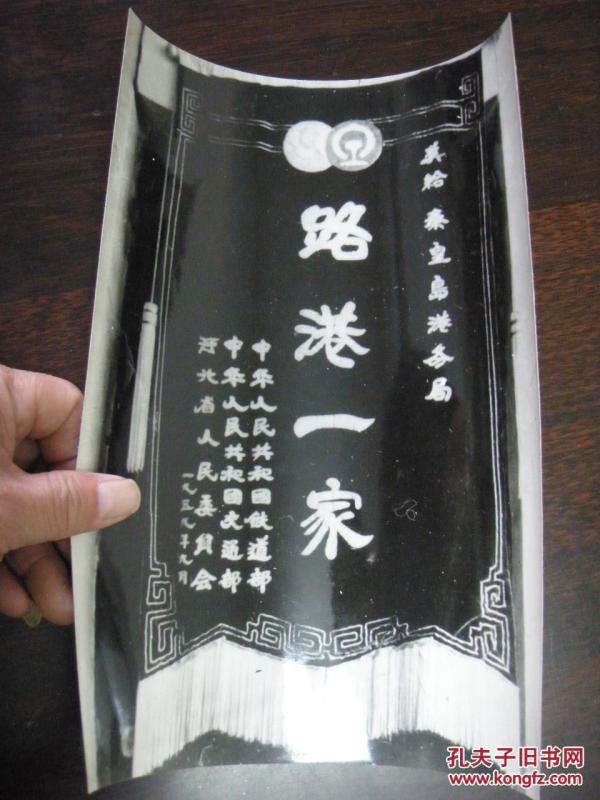 奖给 秦皇岛港务局
路港一家
中华人民共和国铁道部
中华人民共和国交通部
河北省人民委员会
一九五九年九月
孔夫子旧书网
www.kongfz.com